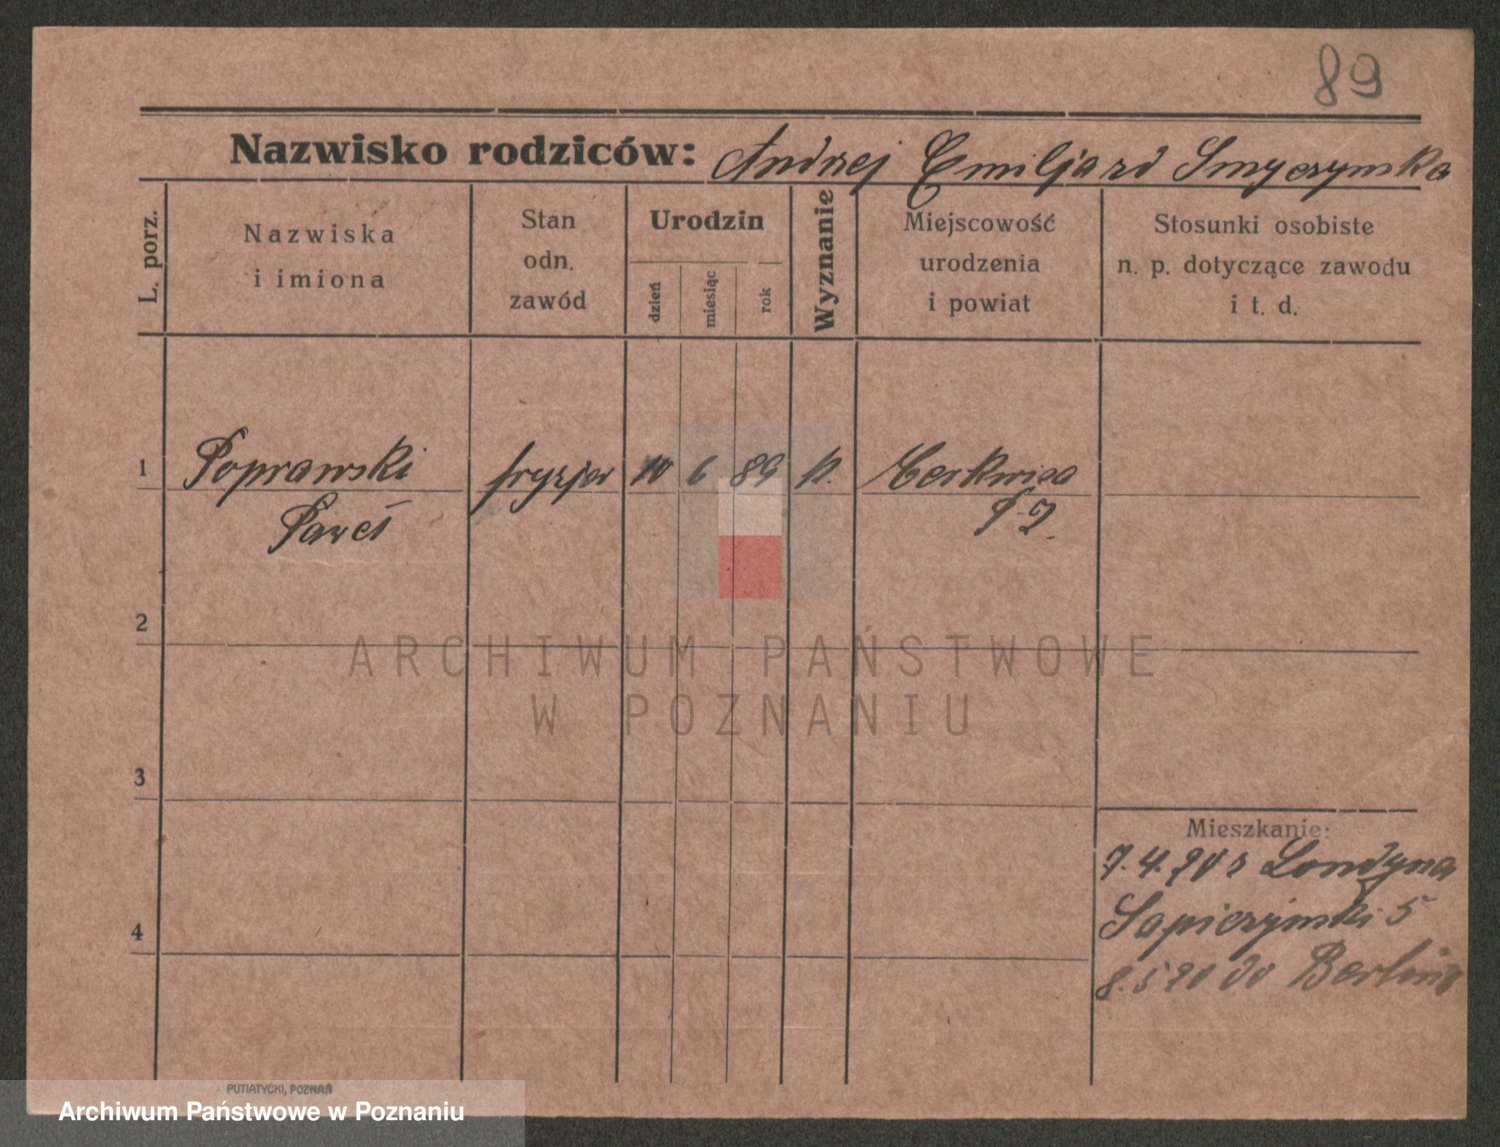 89
Nazwisko rodziców: Andrzej Emiljard Smyczymska
L. porz.
Nazwiska
i imiona
Stan
odn.
zawód
Urodzin
dzień
miesiąc
rok
Wyznanie
Miejscowość
urodzenia
i powiat
Stosunki osobiste
n. p. dotyczące zawodu
i t. d.
1 Poprawski fryzjer 10 6 89 k. Cerkwica
Paweł
2
3
4
Mieszkanie:
7.4.20 z Londyna
Sapieżyński 5
8.5 20 do Berlina
ARCHIWUM PAŃSTWOWE
W POZNANIU
PUTIATYCKI, POZNAŃ
Archiwum Państwowe w Poznaniu